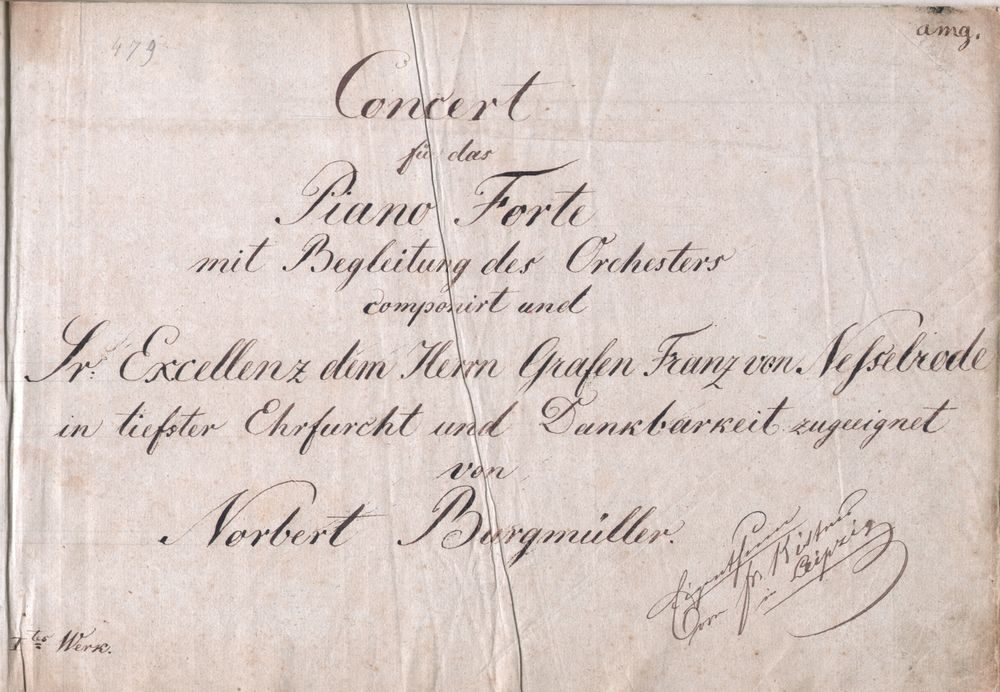 479
amg.
Concert
für das
Piano Forte
mit Begleitung des Orchesters
componirt und
Sr. Excellenz dem Herrn Grafen Franz von Nesselrode
in tiefster Ehrfurcht und Dankbarkeit zugeeignet
von
Norbert Burgmüller.
Eigenthum
von Fr. Kistner
in Leipzig
1tes Werk.